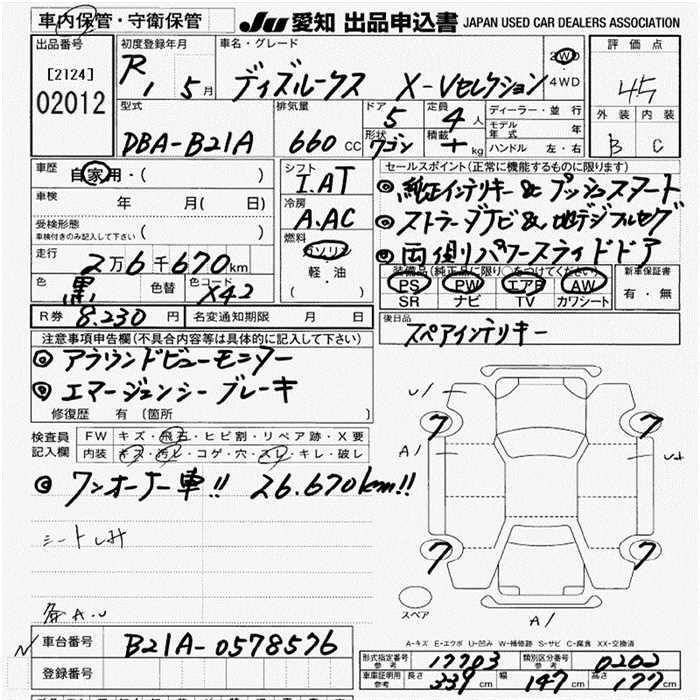 車内保管・守衛保管
JU 愛知 出品申込書 JAPAN USED CAR DEALERS ASSOCIATION
出品番号
[2124]
02012
初度登録年月
R1 5月
車名・グレード
ディズルークス X-Vセレクション
2WD・4WD
評価点
4.5
外装 内装
B C
型式
DBA-B21A
排気量
660 CC
ドア 5
形状 ワゴン
定員 4人
積載 kg
ディーラー・並行
モデル年式 年
ハンドル 左・右
車歴
自家用・( )
車検
年 月( 日)
受検形態
車検付きのみ記入して下さい ( )
走行
2万6千670km
色 黒
色替
色コード X42
シフト
I.AT
冷房
A.AC
燃料
ガソリン
軽・油
( )
セールスポイント(正常に機能するものに限ります)
◎純正インテリキー&プッシュスタート
◎ストラーダナビ&地デジフルセグ
◎両側パワースライドドア
装備品(純正品に限り○をつけてください)
PS PW エアB AW
SR ナビ TV カワシート
新車保証書
有・無
R券 8.230円
名変通知期限 月 日
後日品
スペアインテリキー
注意事項申告欄(不具合内容等は具体的に記入して下さい)
◎アラウンドビューモニター
◎エマージェンシーブレーキ
修復歴 有 (箇所 )
検査員記入欄
FW キズ・飛石・ヒビ割・リペア跡・X要
内装 キズ・汚レ・コゲ・穴・スレ・キレ・破レ
◎ワンオーナー車!! 26.670km!!
シートしみ
各A.U
U1
A1
7
7
7
7
スペア
A1
A-キズ E-エクボ U-凹み W-補修跡 S-サビ C-腐食 XX-交換済
車台番号
B21A-0578576
登録番号
形式指定番号 参考 17783
類別区分番号 参考 0202
車庫証明用 参考
長さ 339cm
幅 147cm
高さ 177cm